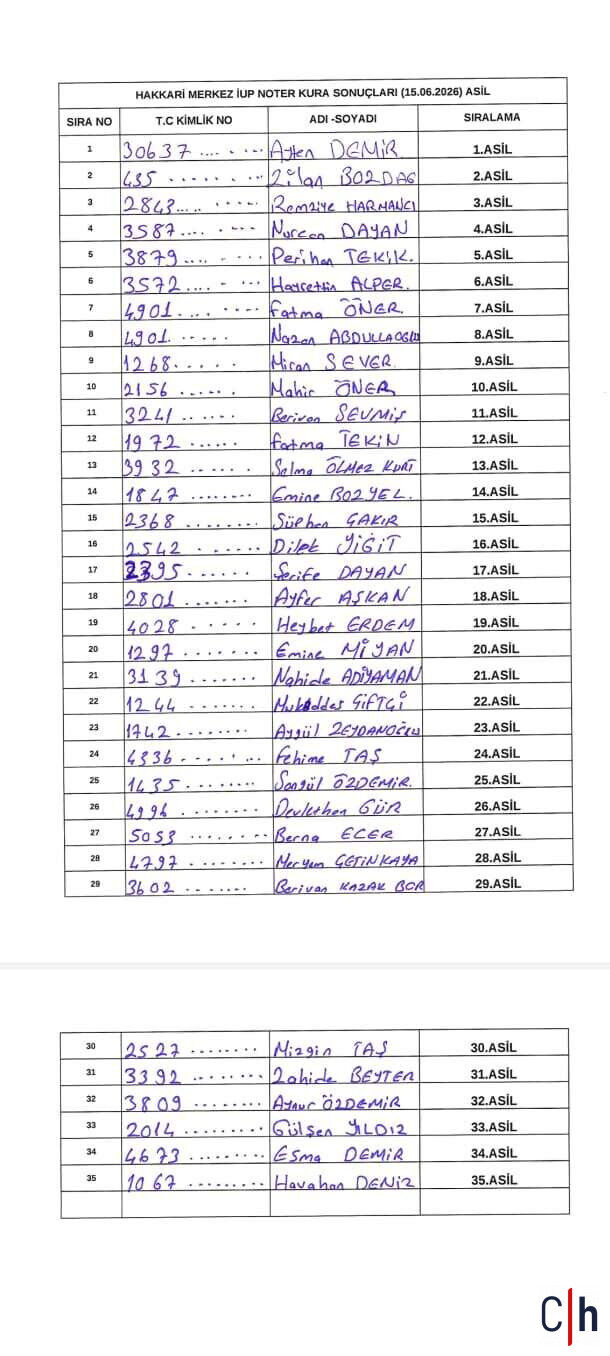 HAKKARİ MERKEZ İUP NOTER KURA SONUÇLARI (15.06.2026) ASİL
SIRA NO T.C KİMLİK NO ADI -SOYADI SIRALAMA
1 30637 .... . ... Ayten DEMİR 1.ASİL
2 435 ......... Zilan BOZDAĞ 2.ASİL
3 2843.... ..... Remziye HARMANCI 3.ASİL
4 3587.... .... Nurcan DAYAN 4.ASİL
5 3879.... .... Perihan TEKİK. 5.ASİL
6 3572.... .... Hayrettin ALPER. 6.ASİL
7 4901.... .... Fatma ÖNER. 7.ASİL
8 4901. ..... Nazan ABDULLAOĞLU 8.ASİL
9 1268...... Mican SEVER. 9.ASİL
10 2156 ..... Mahir ÖNER 10.ASİL
11 3241 ...... Berivan SEVMİŞ 11.ASİL
12 1972 ...... Fatma TEKİN 12.ASİL
13 3932 ...... Selma ÖLMEZ KURT 13.ASİL
14 1847 ........ Emine BOZYEL. 14.ASİL
15 2368 ........ Süphan ÇAKIR 15.ASİL
16 2542 ....... Dilek YİĞİT 16.ASİL
17 2395....... Şerife DAYAN 17.ASİL
18 2801 ....... Ayfer AŞKAN 18.ASİL
19 4028 ...... Heybet ERDEM 19.ASİL
20 1297........ Emine MİYAN 20.ASİL
21 3139 ....... Nahide ADIYAMAN 21.ASİL
22 1244 ....... Mukaddes ÇİFTÇİ 22.ASİL
23 1742......... Aygül ZEYDANOĞLU 23.ASİL
24 4336......... Fehime TAŞ 24.ASİL
25 1435......... Songül ÖZDEMİR. 25.ASİL
26 4996 ........ Devlethan GÜR 26.ASİL
27 5053 ........ Berna ECER 27.ASİL
28 4797......... Meryem ÇETİNKAYA 28.ASİL
29 3602 ....... Berivan KAZAK BOR 29.ASİL
30 2527 ........ Mizgin TAŞ 30.ASİL
31 3392 ........ Zahide BEYTER 31.ASİL
32 3809 ........ Aynur ÖZDEMİR 32.ASİL
33 2014......... Gülşen YILDIZ 33.ASİL
34 4673 ........ Esma DEMİR 34.ASİL
35 1067 ......... Havahan DENİZ 35.ASİL
C|h